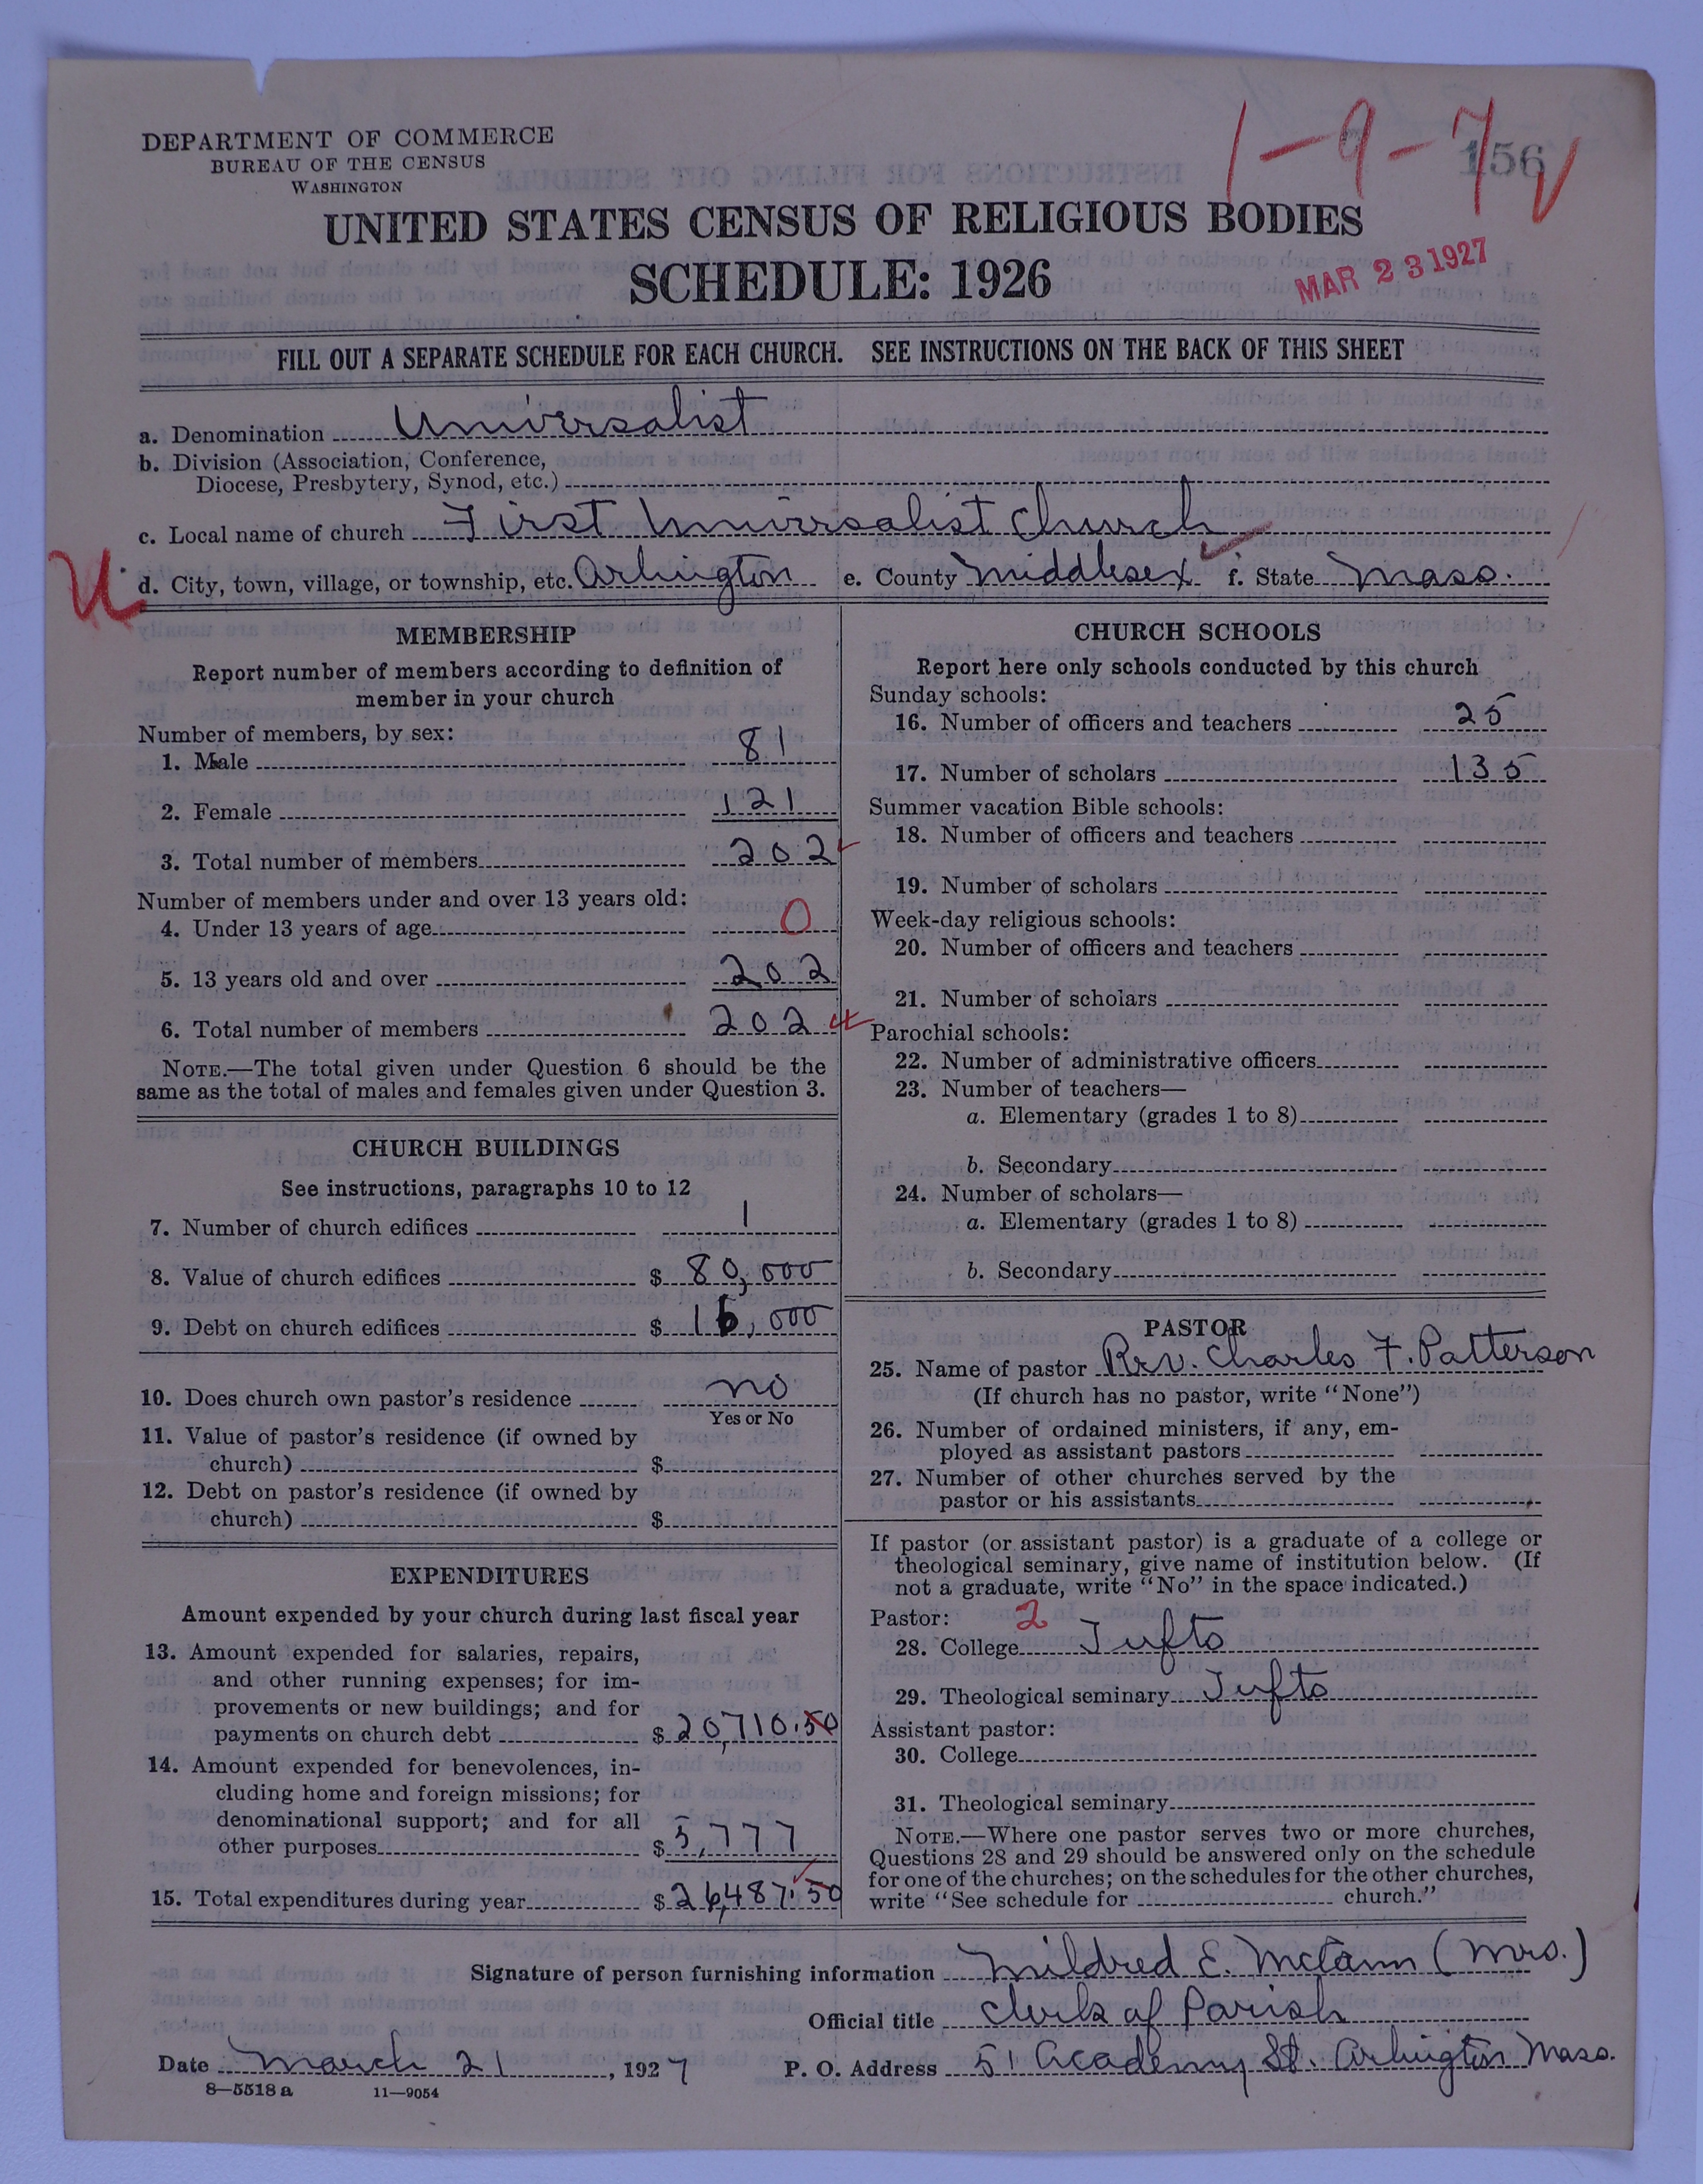 1-9-7
156
DEPARTMENT OF COMMERCE
BUREAU OF THE CENSUS
WASHINGTON
UNITED STATES CENSUS OF RELIGIOUS BODIES
SCHEDULE: 1926
MAR 23 1927
FILL OUT A SEPARATE SCHEDULE FOR EACH CHURCH. SEE INSTRUCTIONS ON THE BACK OF THIS SHEET
a. Denomination Universalist
b. Division (Association, Conference,
Diocese, Presbytery, Synod, etc.)
c. Local name of church First Universalist Church
U
d. City, town, village, or township, etc. Arlington e. County Middlesex f. State Mass.
MEMBERSHIP
Report number of members according to definition of
member in your church
Number of members, by sex:
1. Male 81
2. Female 121
3. Total number of members 202
Number of members under and over 13 years old:
4. Under 13 years of age 0
5. 13 years old and over 202
6. Total number of members 202
NOTE.—The total given under Question 6 should be the
same as the total of males and females given under Question 3.
CHURCH BUILDINGS
See instructions, paragraphs 10 to 12
7. Number of church edifices 1
8. Value of church edifices $ 80,000
9. Debt on church edifices $ 16,000
10. Does church own pastor's residence no
Yes or No
11. Value of pastor's residence (if owned by
church) $
12. Debt on pastor's residence (if owned by
church) $
EXPENDITURES
Amount expended by your church during last fiscal year
13. Amount expended for salaries, repairs,
and other running expenses; for im-
provements or new buildings; and for
payments on church debt $ 20,710.50
14. Amount expended for benevolences, in-
cluding home and foreign missions; for
denominational support; and for all
other purposes $ 5,777
15. Total expenditures during year $ 26,487.50
CHURCH SCHOOLS
Report here only schools conducted by this church
Sunday schools:
16. Number of officers and teachers 25
17. Number of scholars 135
Summer vacation Bible schools:
18. Number of officers and teachers
19. Number of scholars
Week-day religious schools:
20. Number of officers and teachers
21. Number of scholars
Parochial schools:
22. Number of administrative officers
23. Number of teachers—
a. Elementary (grades 1 to 8)
b. Secondary
24. Number of scholars—
a. Elementary (grades 1 to 8)
b. Secondary
PASTOR
25. Name of pastor Rev. Charles F. Patterson
(If church has no pastor, write "None")
26. Number of ordained ministers, if any, em-
ployed as assistant pastors
27. Number of other churches served by the
pastor or his assistants
If pastor (or assistant pastor) is a graduate of a college or
theological seminary, give name of institution below. (If
not a graduate, write "No" in the space indicated.)
Pastor: 2
28. College Tufts
29. Theological seminary Tufts
Assistant pastor:
30. College
31. Theological seminary
NOTE.—Where one pastor serves two or more churches,
Questions 28 and 29 should be answered only on the schedule
for one of the churches; on the schedules for the other churches,
write "See schedule for church."
Signature of person furnishing information Mildred E. (Mrs.)
Official title Clerk of Parish
Date March 21, 1927 P. O. Address 51 Academy St. Arlington Mass.
8—5518 a 11—9054